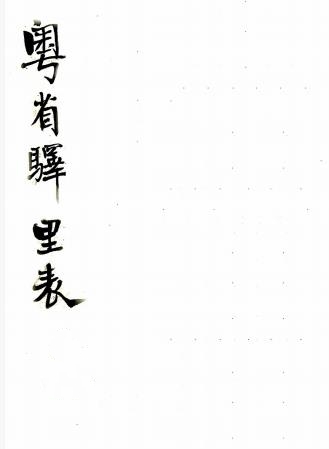 粵省驛里表